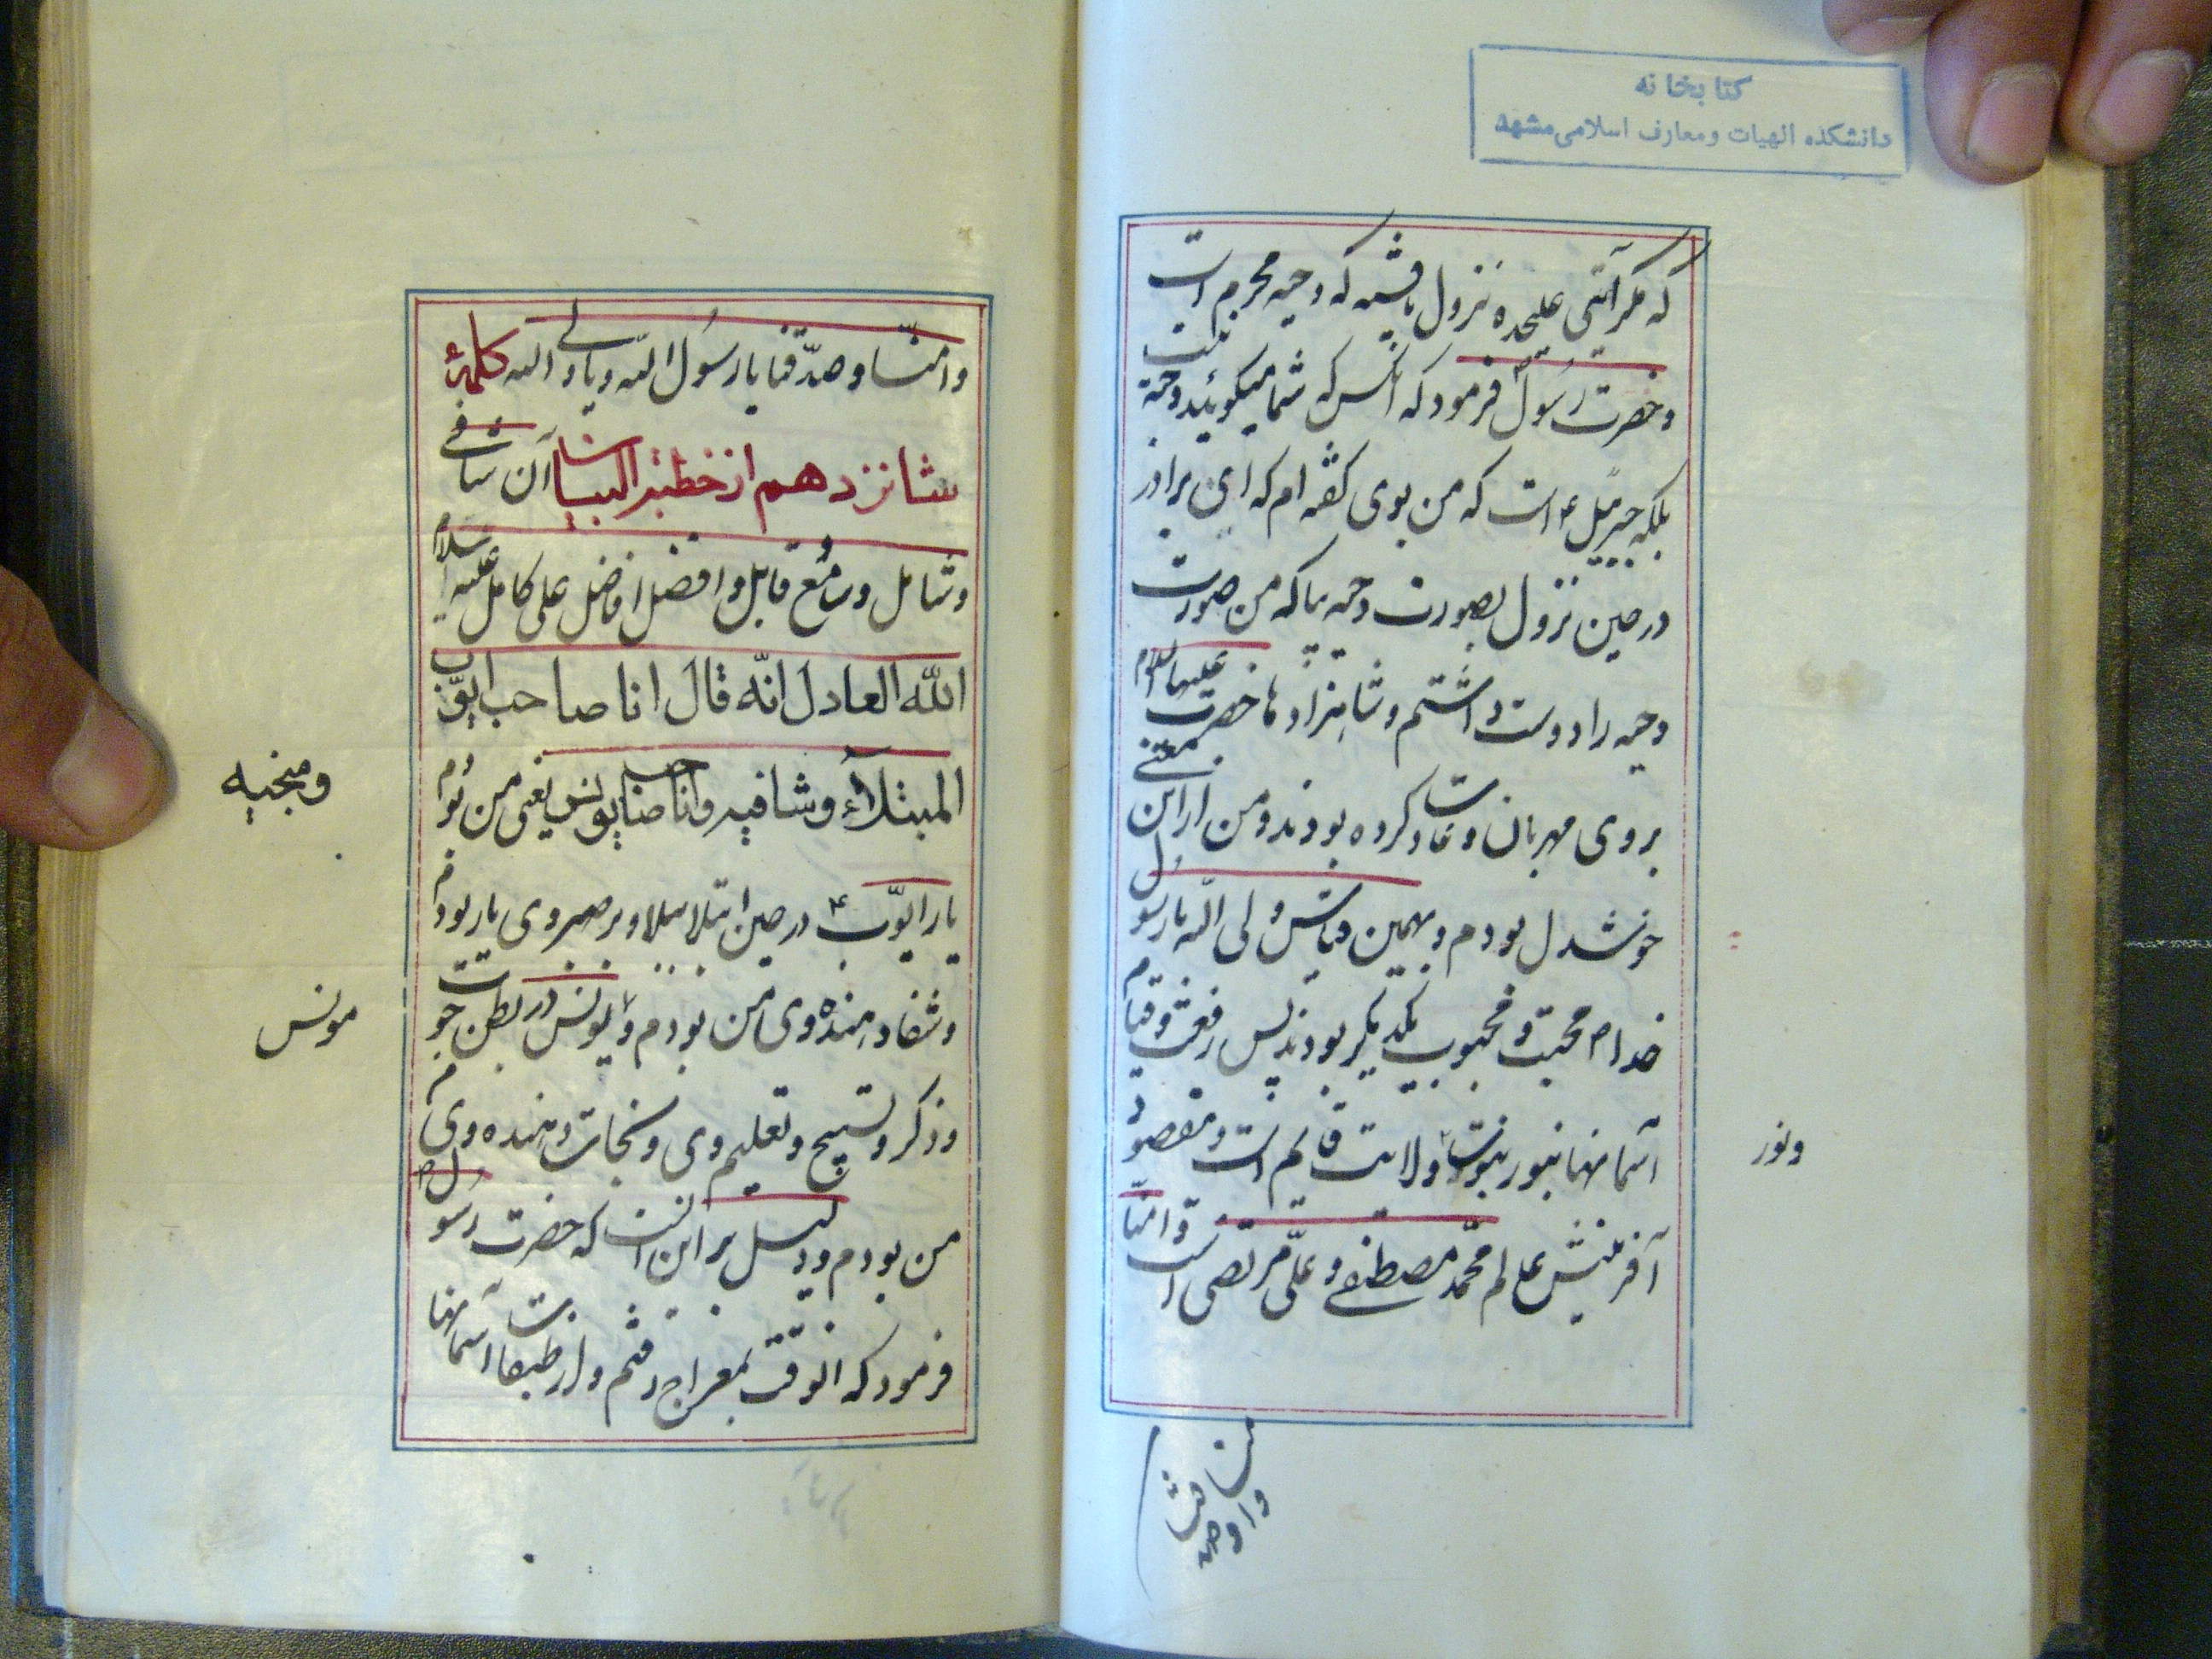 کتابخانه
دانشکده الهیات و معارف اسلامی مشهد
که مگر آیتی علیحده نزول یافته که دحیه محرم است
و حضرت رسول فرمود که آنکس که شما میگوئید دحیه نیست
بلکه جبرئیل ع است که من بوی گفته ام که ای برادر
در حین نزول بصورت دحیه بیا که من صورت
دحیه را دوست داشتم و شاهزادها حضرت علیهما السلام
بروی مهربان و عادت کرده بودند و من از این معنی
خوشدل بودم و بهمین ولی الله با رسول
خدام محبت و محبوب یکدیگر بودند پس رفعت و قیام
آسمانها بنور نبوت و ولایت قایم است و مقصود
ونور
آفرینش عالم محمد مصطفی و علی مرتضی است و امنا
وامنا وصدقنا
وامنا وصدقنا یا رسول الله ویا ولی الله کلمهٔ
شانزدهم از خطبة البیان آن شافی
و شامل و سامع قابل و افضل افاضل علی کامل علیه سلام
الله العادل انه قال انا صاحب ایوب
المبتلاء وشافیه وانا صاحب یونس یعنی من بودم
ومنجیه
یار ایوب ع در حین ابتلا ببلا و بر صبر وی یار بودم
و شفا دهنده وی من بودم و یونس در بطن حوت
مونس
و ذکر و تسبیح و تعلیم وی و نجات دهنده وی
من بودم و دلیل بر این آنست که حضرت رسول ص
فرمود که آنوقت بمعراج رفتم و از طبقات آسمانها